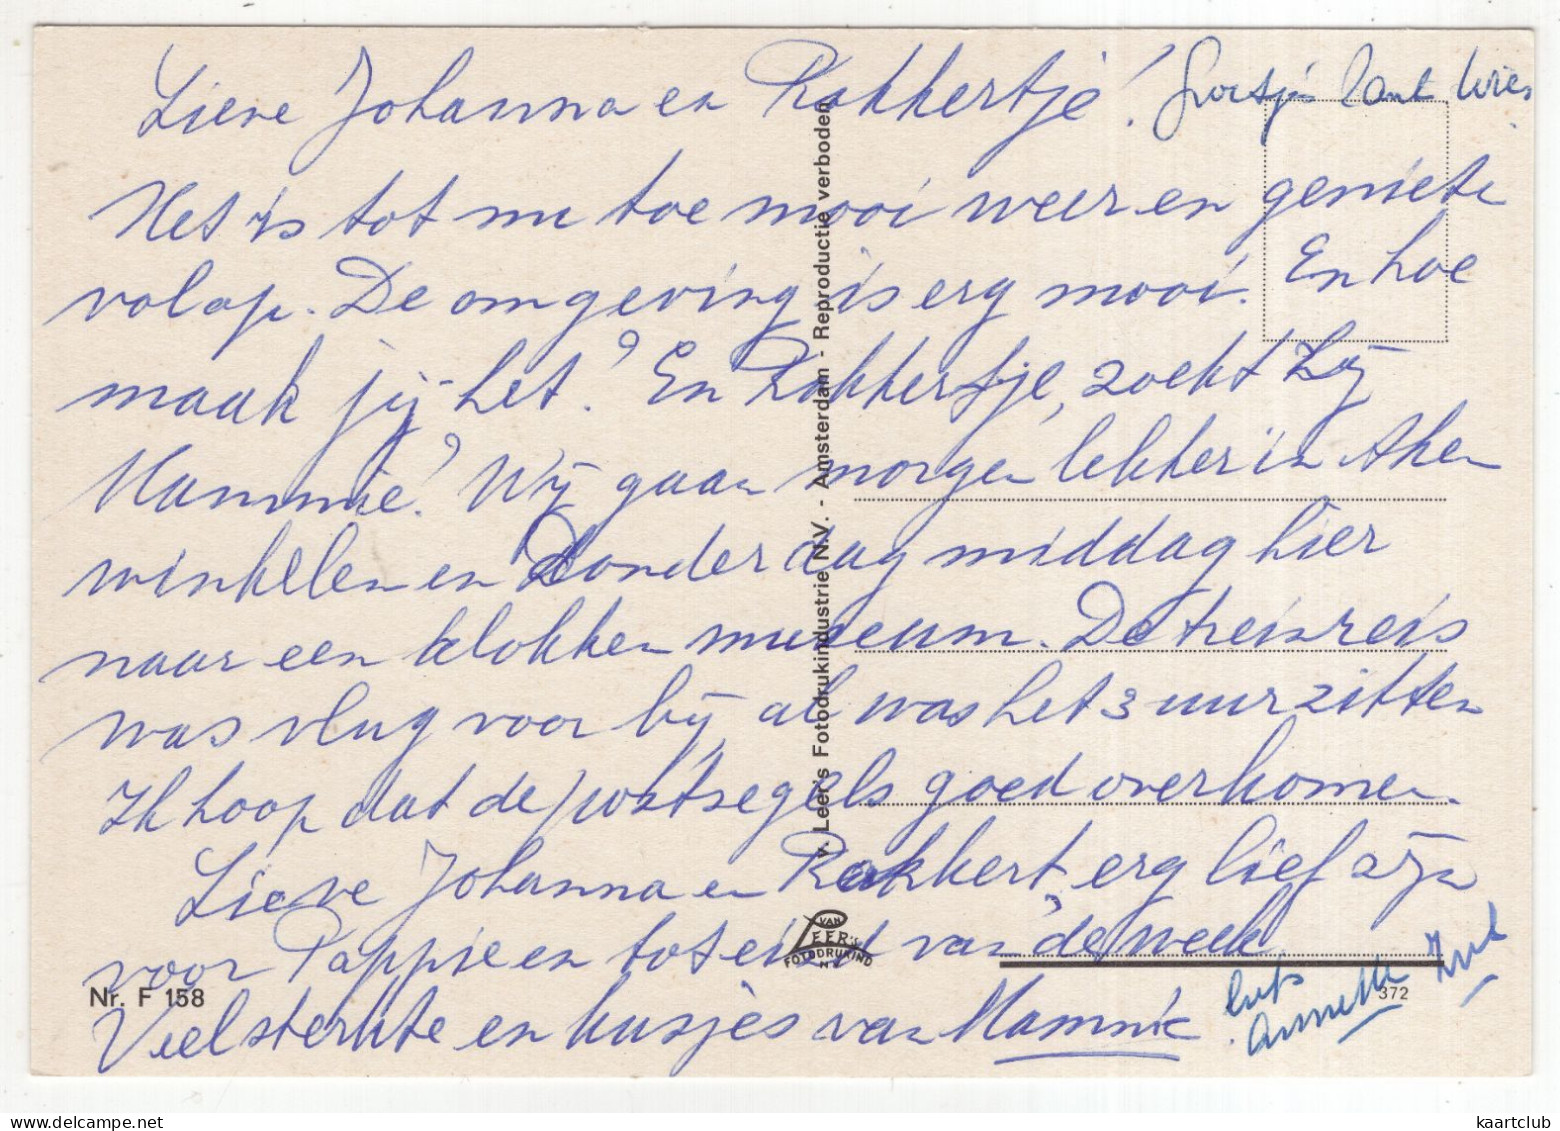 Lieve Johanna en Rakkertje! Groetjes tant Wies
Het is tot nu toe mooi weer en geniete
volop. De omgeving is erg mooi. En hoe
maak jij het? En Rakkertje, zoekt hij
Mammie? Wij gaan morgen lekker in Aken
winkelen en Donderdag middag hier
naar een klokken museum. De treinreis
was vlug voor bij, al was het 3 uur zitten
Ik hoop dat de postzegels goed overkomen.
Lieve Johanna en Rakkert erg lief zijn
voor Pappie en tot eind van de week
Veel sterkte en kusjes van Mammie
liefs
Annette
v. Leer's Fotodrukindustrie N.V. - Amsterdam - Reproductie verboden
VAN
LEER'S
FOTODRUKIND
N
Nr. F 158
372
kaartclub
www.delcampe.net